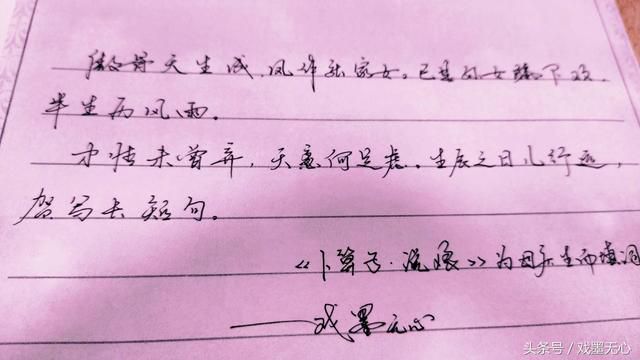 傲骨天生成,风作张家女。已是外女膝下欢,
半生历风雨。
才情未曾弃,天意何足虑。生辰之日儿行远,
贺写长短句。
《卜算子·流》为母亲生而填词
——戏墨无心
头条号／戏墨无心